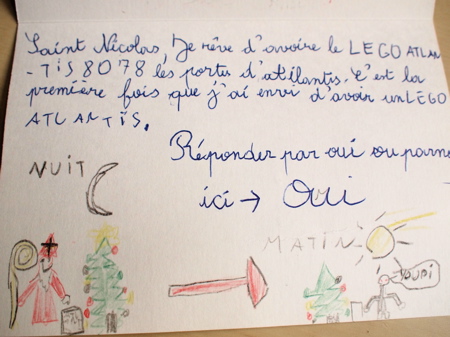 Saint Nicolas, Je rêve d'avoire le LEGO ATLAN
-TIS 8078 les portu d'atilantis. C'est la
première fois que j'ai envi d'avoir un LEGO
ATLANTIS.
Répondez par oui ou parnon
ici → Oui
NUIT
MATIN
OUPI